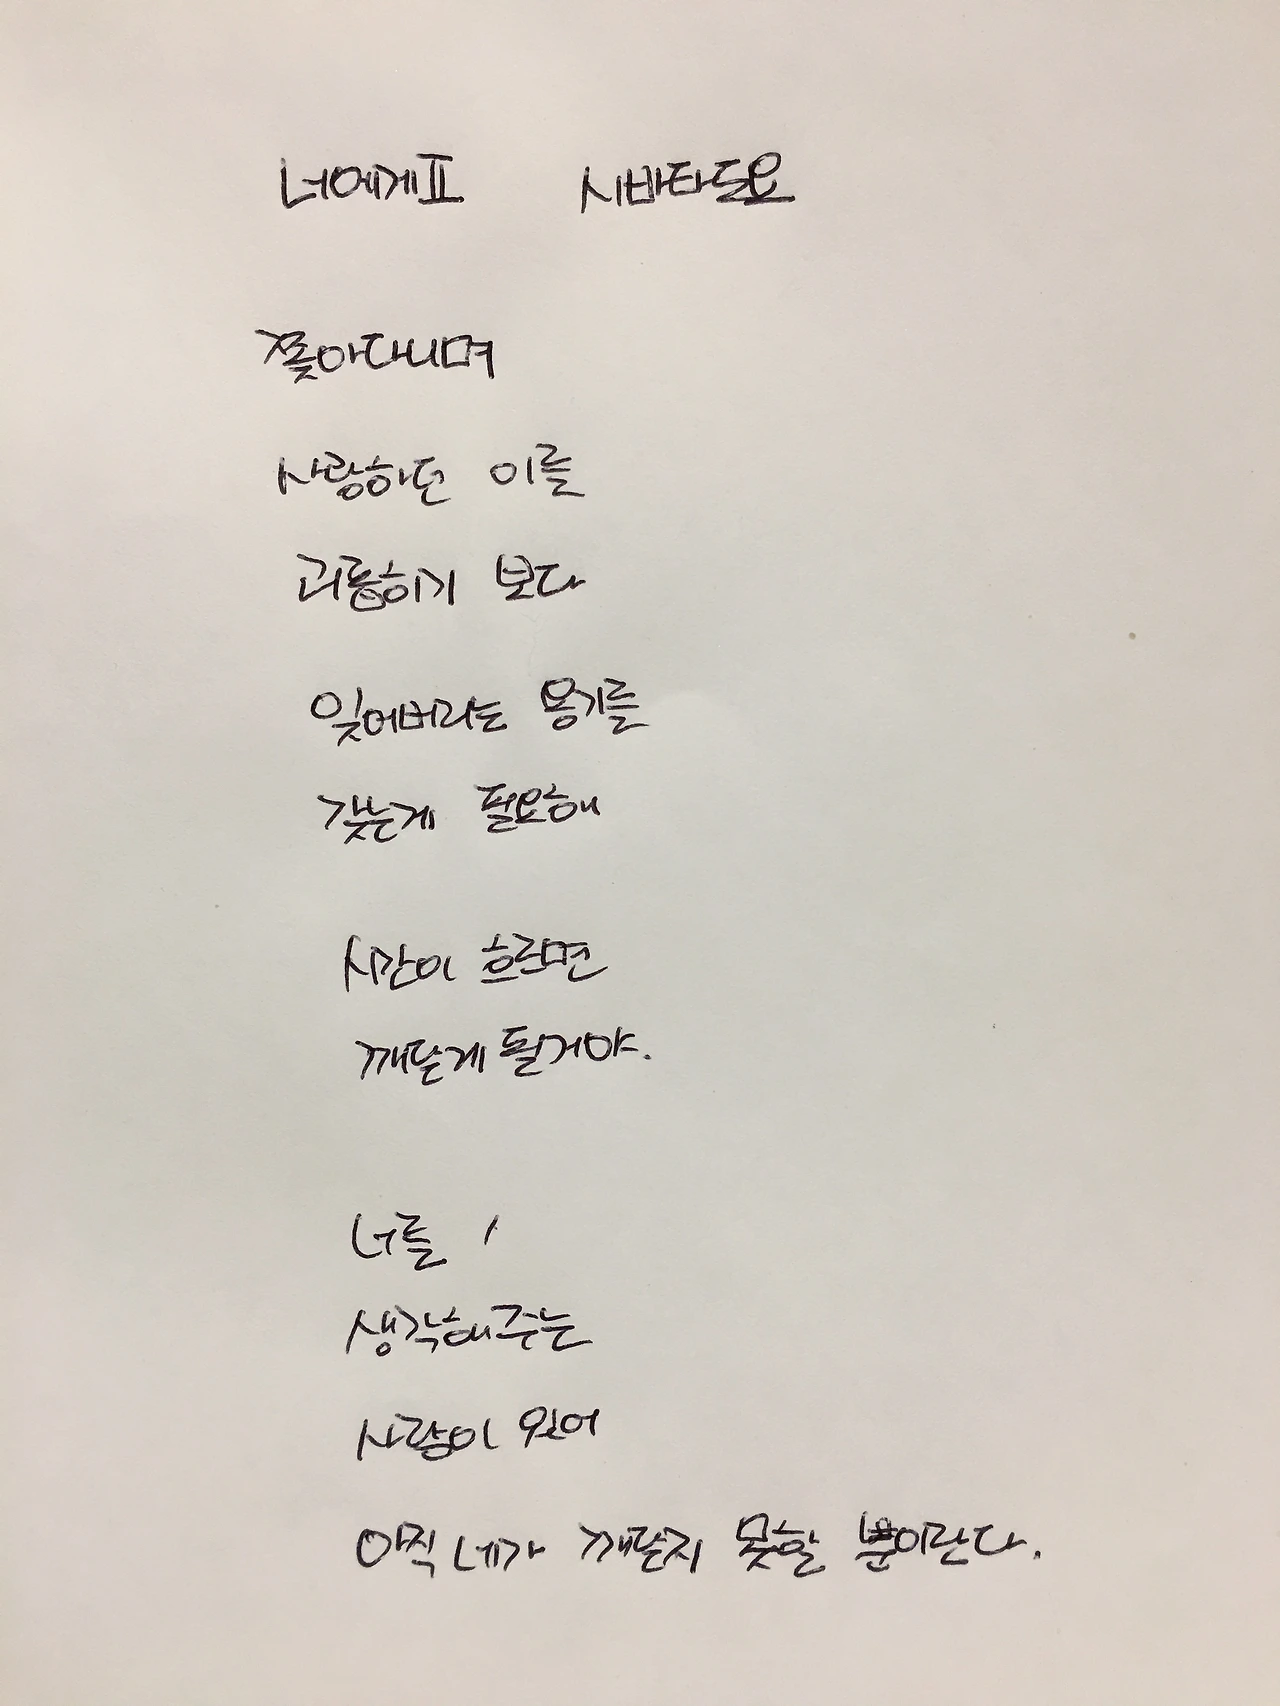 너에게Ⅱ 시바타도요
쫓아다니며
사랑하던 이를
괴롭히기 보다
잊어버리는 용기를
갖는게 필요해
시간이 흐르면
깨닫게 될거야.
너를
생각해주는
사람이 있어
아직 네가 깨닫지 못할 뿐이란다.